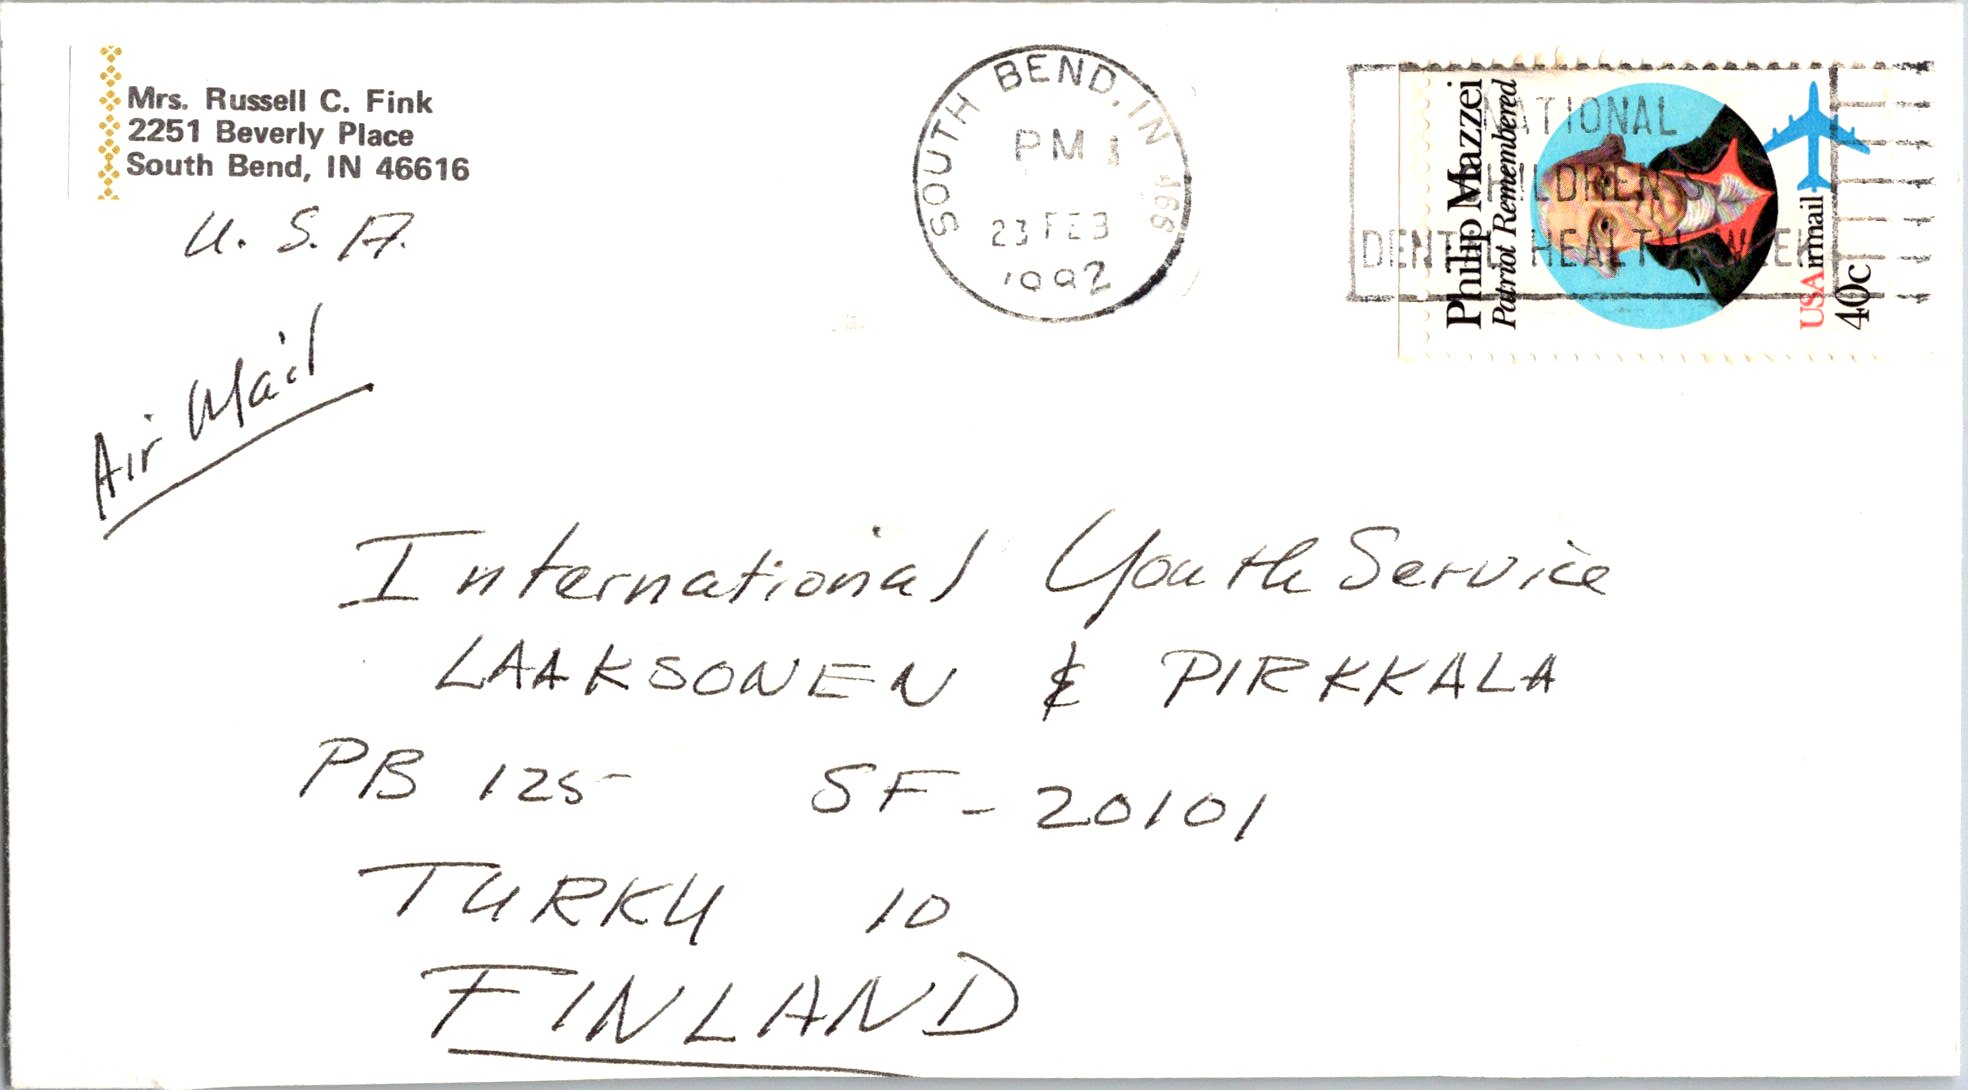 Mrs. Russell C. Fink
2251 Beverly Place
South Bend, IN 46616
U. S. A.
Air Mail
SOUTH BEND, IN 466
PM
23 FEB
1992
NATIONAL
CHILDREN'S
DENTAL HEALTH WEEK
Philip Mazzei
Patriot Remembered
USAirmail
40c
International Youth Service
LAAKSONEN & PIRKKALA
PB 125 SF-20101
TURKU 10
FINLAND